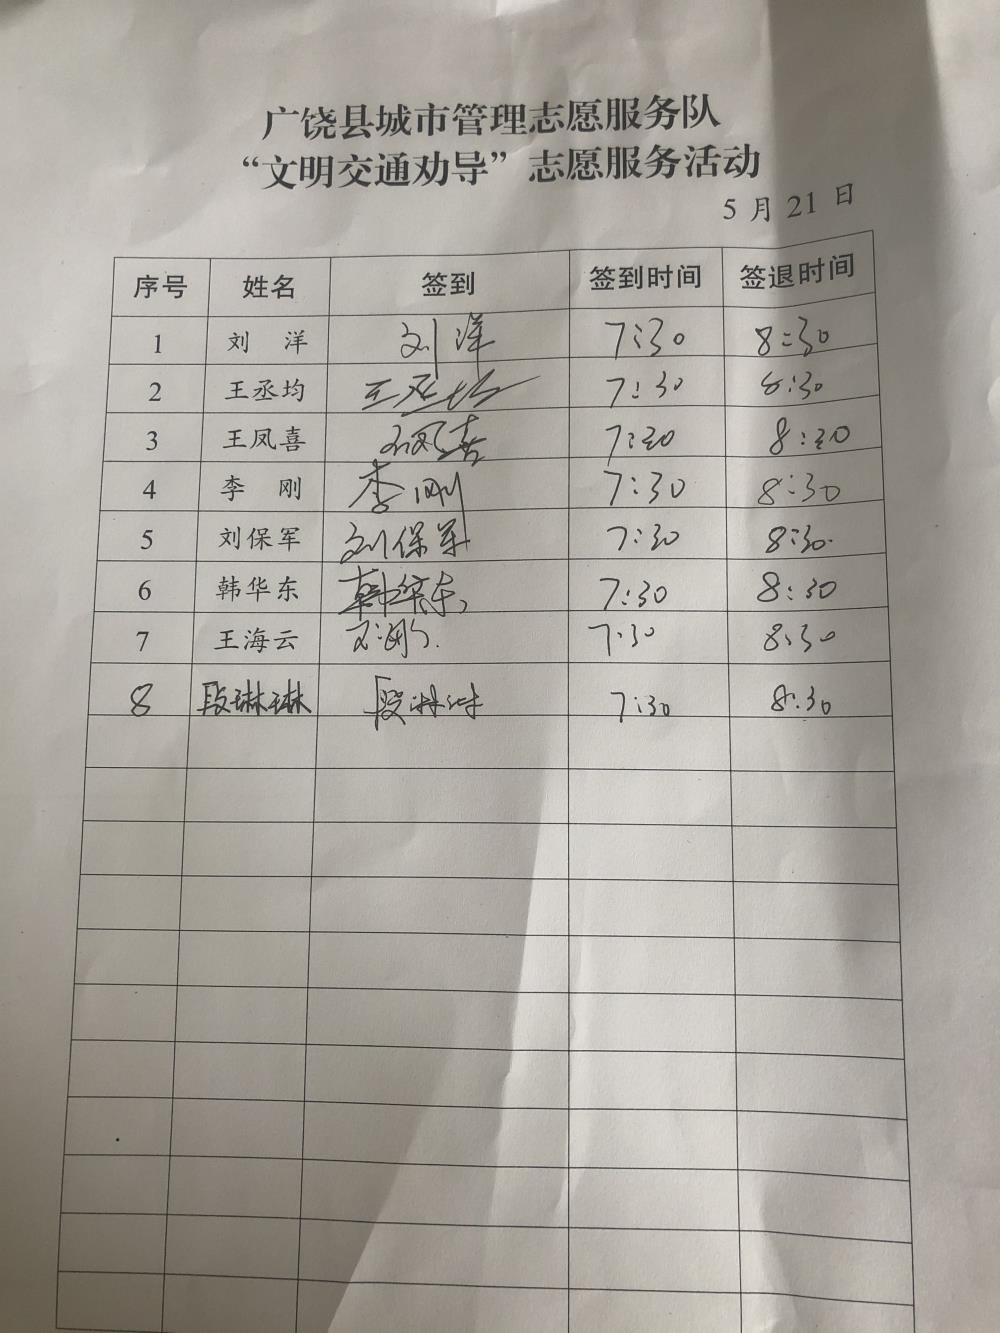 广饶县城市管理志愿服务队
“文明交通劝导”志愿服务活动
5 月 21 日
序号 姓名 签到 签到时间 签退时间
1 刘 洋 刘洋 7:30 8:30
2 王丞均 王丞均 7:30 8:30
3 王凤喜 王凤喜 7:30 8:30
4 李 刚 李刚 7:30 8:30
5 刘保军 刘保军 7:30 8:30
6 韩华东 韩华东 7:30 8:30
7 王海云 7:30 8:30
8 段琳琳 段琳琳 7:30 8:30